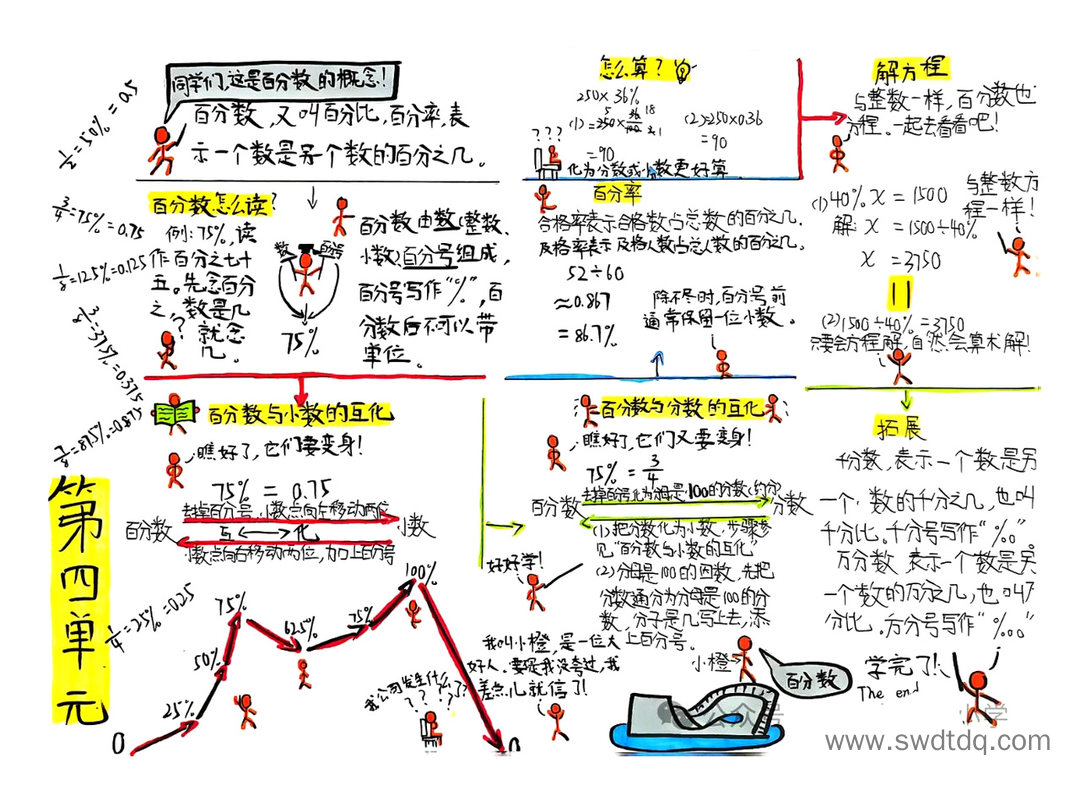 第四单元
同学们,这是百分数的概念!
百分数,又叫百分比,百分率,表
示一个数是另一个数的百分之几。
1/2=50%=0.5
3/4=75%=0.75
1/8=12.5%=0.125
3/8=37.5%=0.375
7/8=87.5%=0.875
1/4=25%=0.25
百分数怎么读?
例:75%,读
作百分之七十
五。先念百分
之,数是几
就念
几。
?
数
百分号
75%
百分数由数(整数、
小数)百分号组成,
百分号写作“%”,百
分数后不可以带
单位。
百分数与小数的互化
瞧好了,它们要变身!
75% = 0.75
去掉百分号,小数点向左移动两位
百分数
互
化
小数
小数点向右移动两位,加上百分号
0
25%
50%
75%
62.5%
75%
100%
0
我公司发生什么
? ? ?
怎么算?
250×36%
(1)=250×36/100
5
18
2
1
=90
(2)=250×0.36
=90
???
化为分数或小数更好算
百分率
合格率表示合格数占总数的百分之几.
及格率表示及格人数占总人数的百分之几。
52÷60
≈0.867
=86.7%
除不尽时,百分号前
通常保留一位小数。
百分数与分数的互化
瞧好了,它们又要变身!
75% = 3/4
去掉百分号化为分母是100的分数(约分)
百分数
分数
(1)把分数化为小数,步骤参
见“百分数与小数的互化”
(2)分母是100的因数,先把
分数通分为分母是100的分
数,分子是几写上去,添
上百分号。
好好学!
我叫小橙,是一位大
好人。要是我没夸过,我
差点儿就信了!
小橙→
百分数
解方程
与整数一样,百分数也
方程。一起去看看吧!
(1)40%x=1500
解:x=1500÷40%
x=3750
与整数方
程一样!
(2)1500÷40%=3750
只要会方程解,自然会算术解!
拓展
千分数,表示一个数是另
一个数的千分之几,也叫
千分比。千分号写作“‰”。
万分数 表示一个数是另
一个数的万分之几,也叫万
分比。万分号写作“‱”
学完了!
The end
公众号
小学
www.swdtdq.com